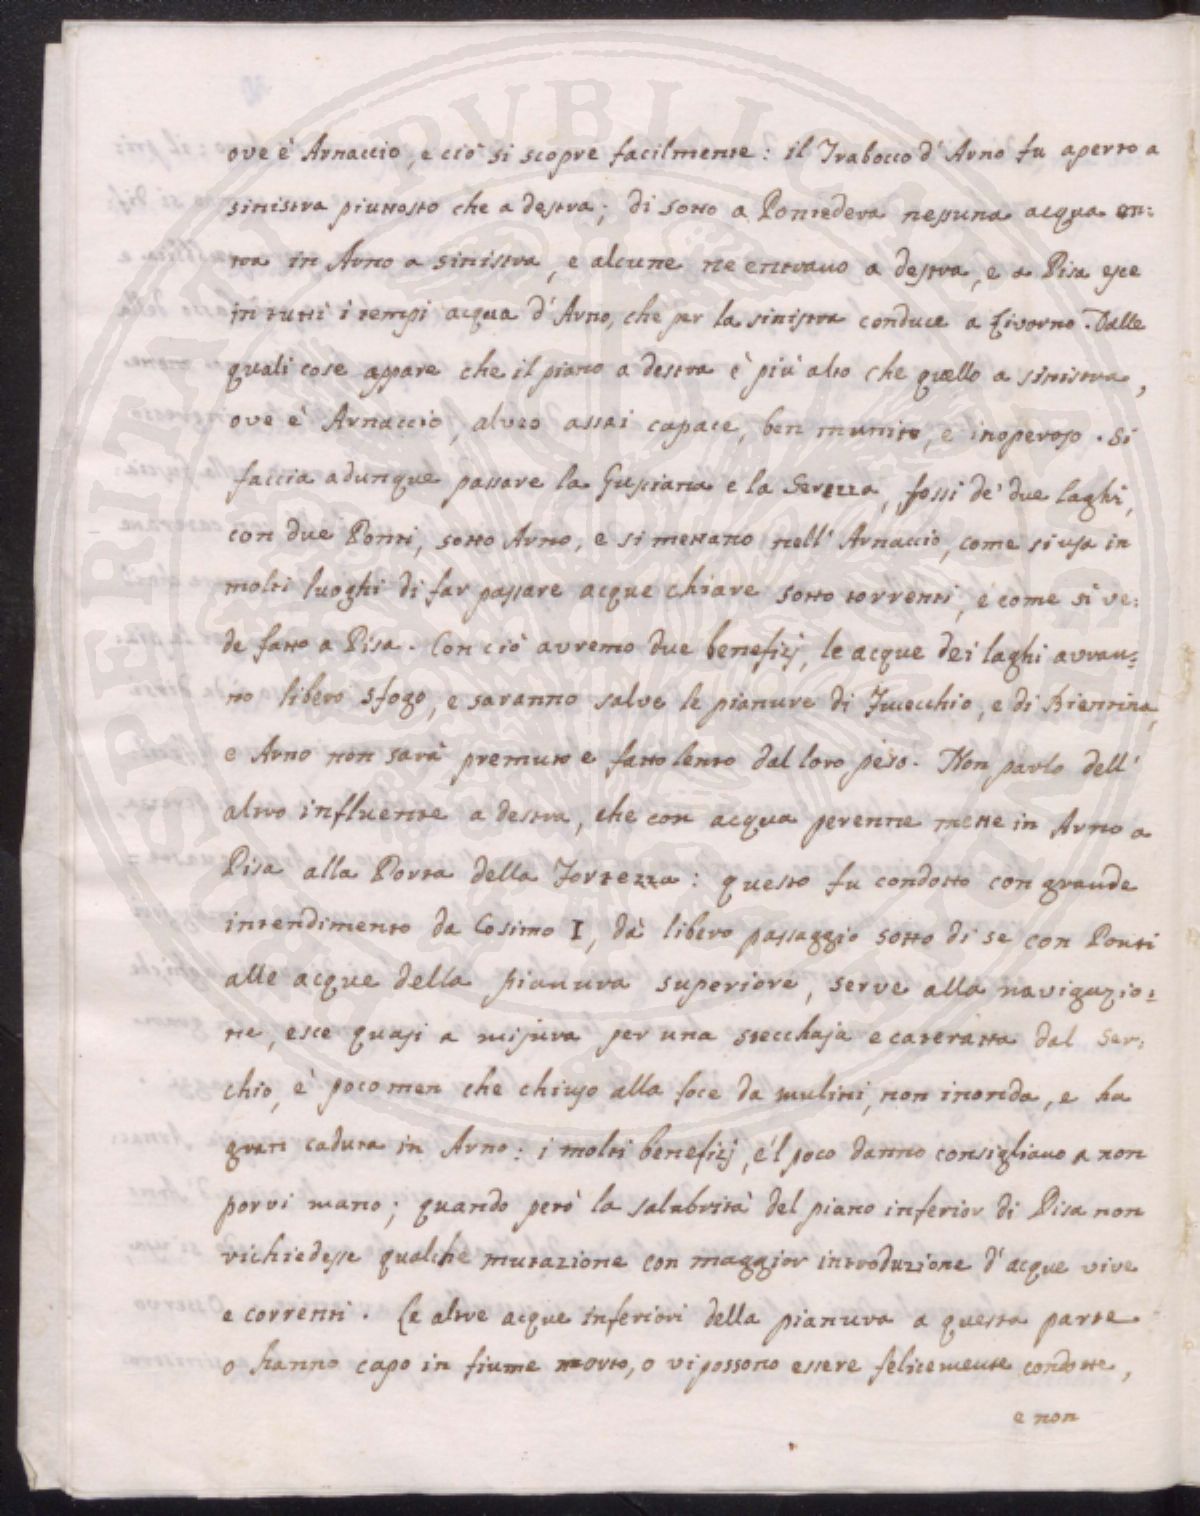 ove è Arnaccio, e ciò si scopre facilmente: il Trabocco d'Arno fu aperto a
sinistra piuttosto che a destra; di sotto a Pontedera nessuna acqua en:
tra in Arno a sinistra, e alcune ne entrano a destra, e a Pisa esce
in tutti i tempi acqua d'Arno, che per la sinistra conduce a Livorno. Dalle
quali cose appare che il piano a destra è più alto che quello a sinistra,
ove è Arnaccio, alveo assai capace, ben munito, e inoperoso. Si
faccia adunque passare la Gusciana e la Serezza, fossi de' due laghi,
con due Ponti, sotto Arno, e si mettano nell'Arnaccio, come si usa in
molti luoghi di far passare acque chiare sotto torrenti, e come si ve:
de fatto a Pisa. Con ciò avremo due benefizj, le acque dei laghi avran:
no libero sfogo, e saranno salve le pianure di Fucecchio, e di Bientina,
e Arno non sarà premuto e fatto lento dal loro peso. Non parlo dell'
altro influente a destra, che con acqua perenne mette in Arno a
Pisa alla Porta della Fortezza: questo fu condotto con grande
intendimento da Cosimo I, dà libero passaggio sotto di se con Ponti
alle acque della pianura superiore, serve alla navigazio:
ne, esce quasi a misura per una stecchaja e cateratta dal Ser:
chio, è poco men che chiuso alla foce da mulini, non inonda, e ha
gran caduta in Arno: i molti benefizj, e'l poco danno consigliano a non
porvi mano; quando però la salubrità del piano inferior di Pisa non
richiedesse qualche mutazione con maggior introduzione d'acque vive
e correnti. Le altre acque inferiori della pianura a questa parte
o hanno capo in fiume morto, o vi possono essere felicemente condotte,
e non